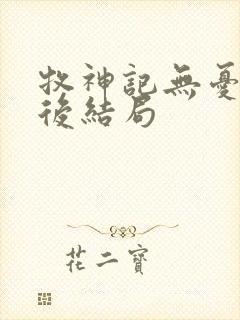 牧神記無憂
後結局
花二寶